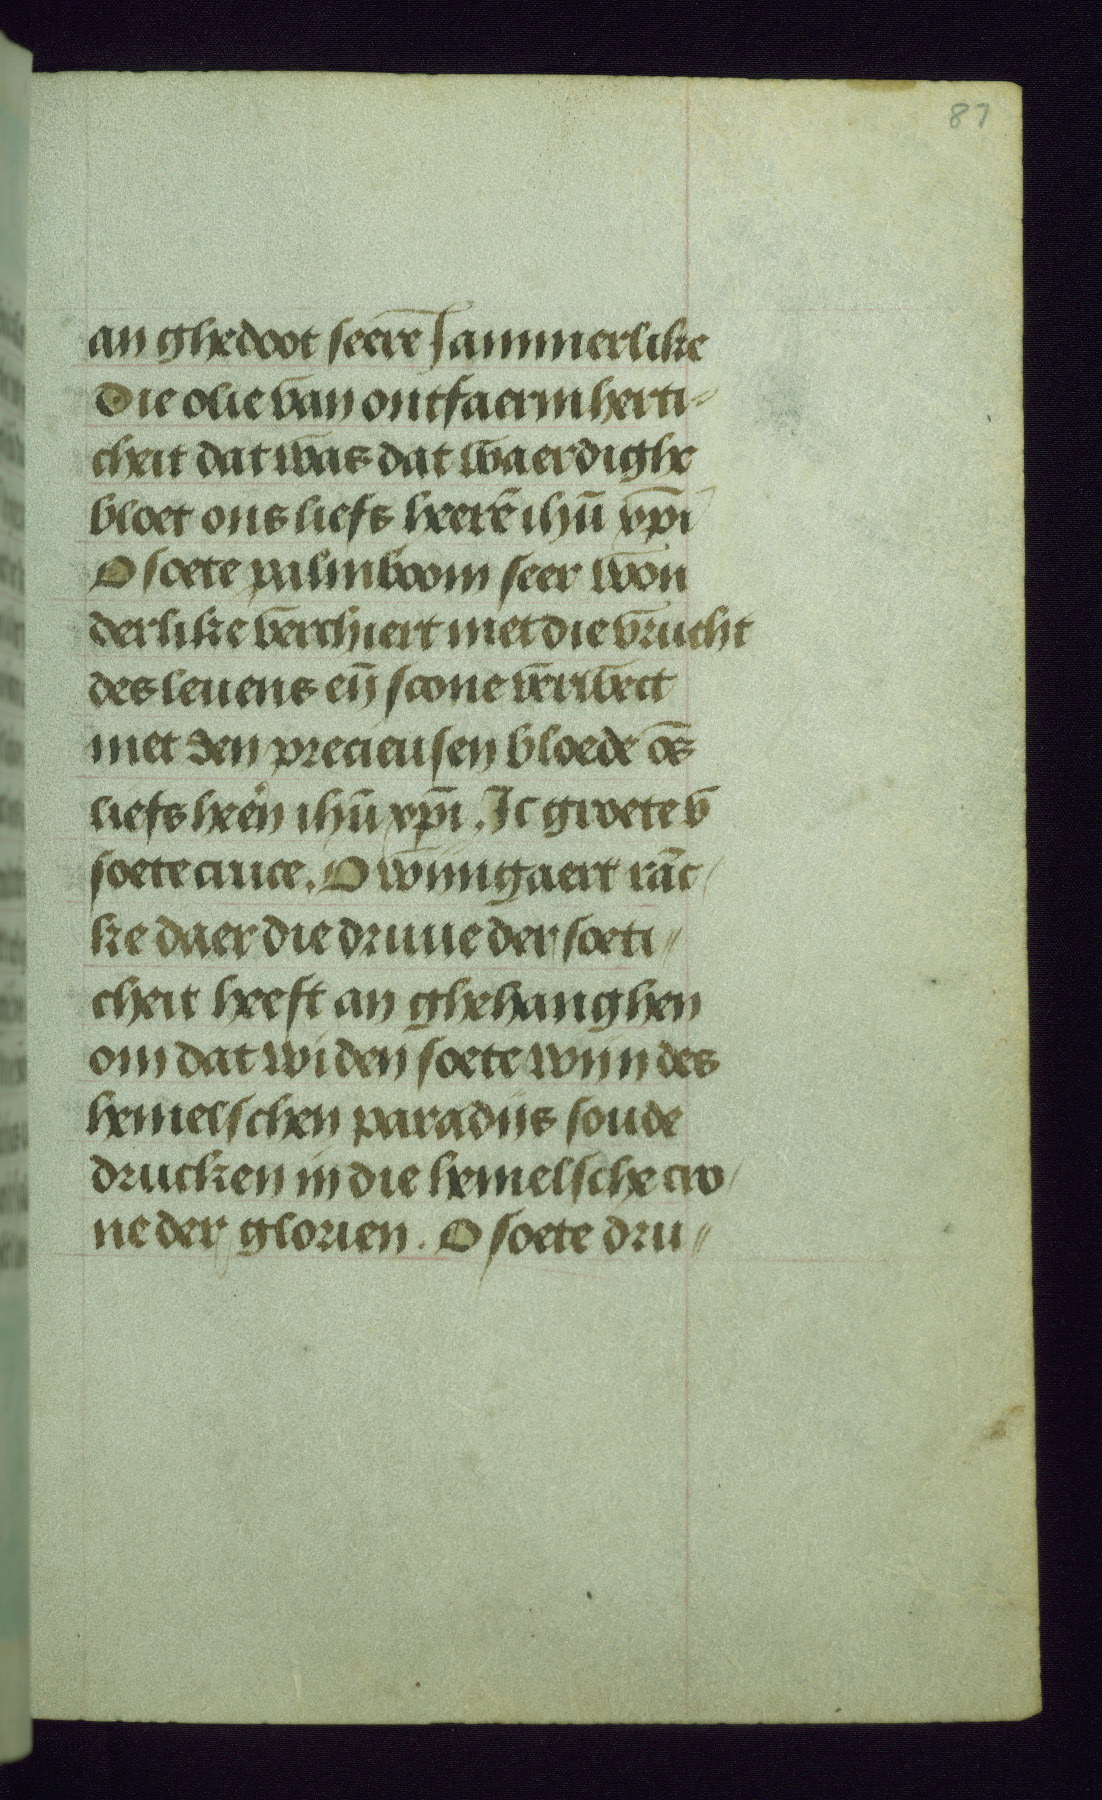 87
an ghedoot seere Jammerlike
Die olie van ontfaermherti-
cheit dat was dat waerdighe
bloet ons liefs heerē ihū xp̄i
O soete palmboom seer won
derlike verchiert met die vrucht
des leuens eñ scone verwect
met den precieusen bloede ōs
liefs heeñ ihū xp̄i. Ic groete v
soete cruce. O wijngaert rāc/
ke daer die druue der soeti//
cheit heeft an ghehanghen
om dat wi den soete wijn des
hemelschen paradijs soude
drucken in die hemelsche cro/
ne der glorien. O soete dru//